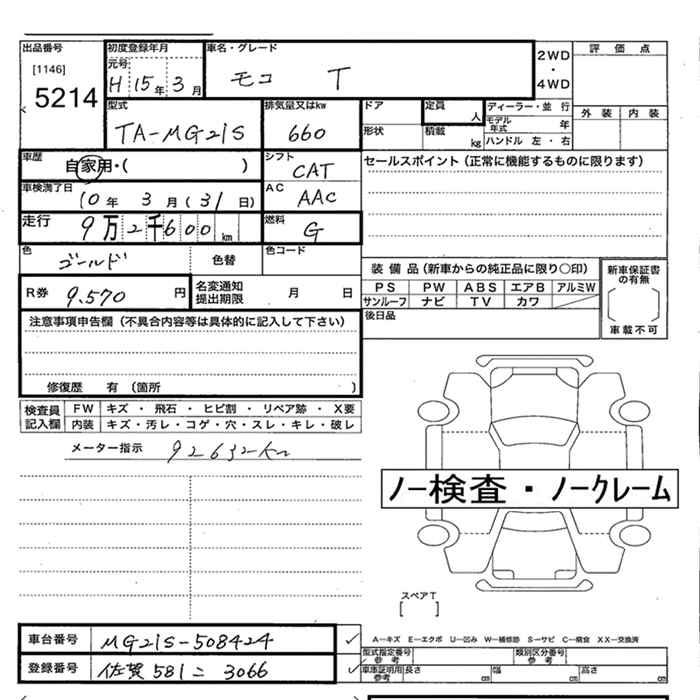 出品番号 初度登録年月 車名・グレード 評価点
[1146] 元号 2WD・4WD
5214 H 15年 3月 モコ T 外装 内装
型式 排気量又はkw ドア 定員 人 ディーラー・並行
TA-MG21S 660 形状 積載 kg モデル年式 年
ハンドル 左・右
車歴 自家用・( ) シフト CAT セールスポイント(正常に機能するものに限ります)
車検満了日 10年 3月(31日) AC AAC
走行 9万2千600km 燃料 G
色 ゴールド 色替 色コード
装備品(新車からの純正品に限り○印) 新車保証書の有無
R券 9.570円 名変通知提出期限 月 日 PS PW ABS エアB アルミW
サンルーフ ナビ TV カワ
注意事項申告欄(不具合内容等は具体的に記入して下さい) 後日品 車載不可
修復歴 有(箇所 )
検査員記入欄 FW キズ・飛石・ヒビ割・リペア跡・X要
内装 キズ・汚レ・コゲ・穴・スレ・キレ・破レ
メーター指示 92632km
ノー検査・ノークレーム
スペアT
[ ]
車台番号 MG21S-508424 ✓ A―キズ E―エクボ U―凹み W―補修跡 S―サビ C―腐食 XX―交換済
型式指定番号 参考 類別区分番号 参考
登録番号 佐賀 581 ニ 3066 ✓ 車庫証明用参考 長さ cm 幅 cm 高さ cm